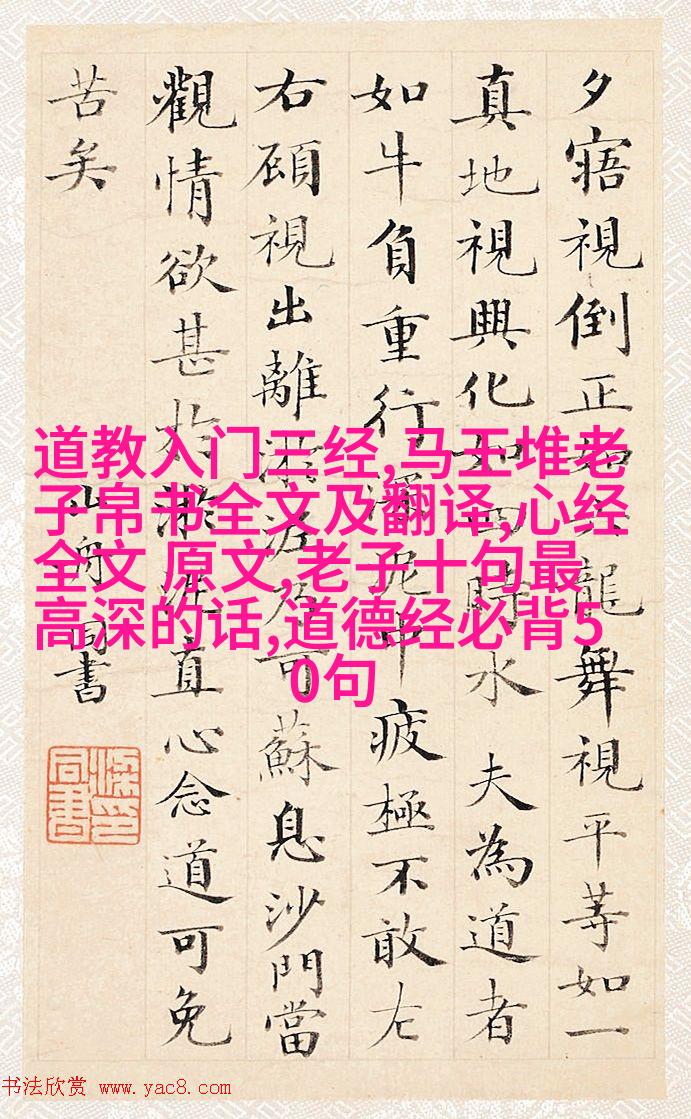 夕寤視倒正如六龍舞視平等如一
真地視興化如四時木 夫為道者
如牛負重行深泥中疲極不敢左
右顧視出離淤泥乃可蘇息沙門當
觀情欲甚於淤泥直心念道可免
苦矣
山舟同書
梁印同書
道教入门三经,马王堆老
子帛书全文及翻译,心经
全文 原文,老子十句最
高深的话,道德经必背5
0句
书法欣赏 www.yac8.com